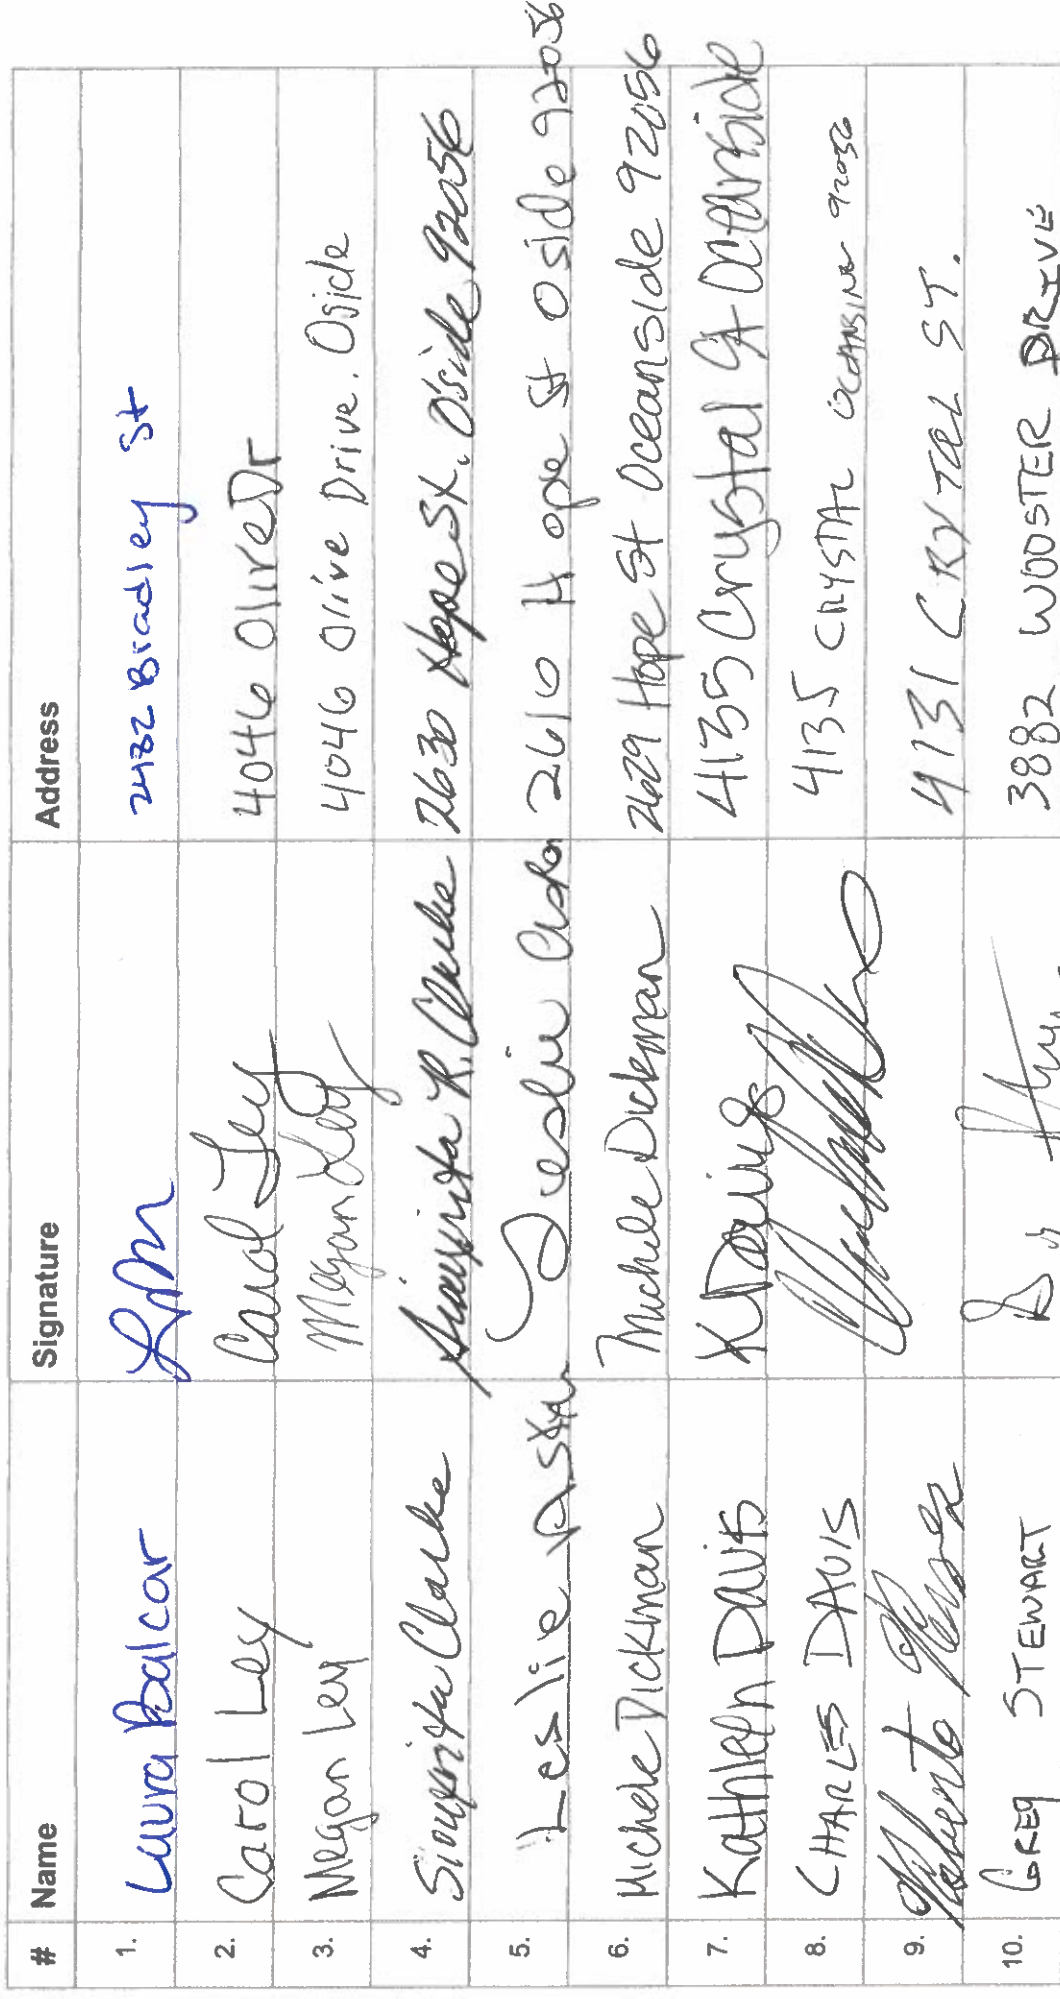 # Name Signature Address
1. Laura Balcar 2432 Bradley St
2. Carol Ley Carol Ley 4046 Olive Dr
3. Megan Ley Megan Ley 4046 Olive Drive. Oside
4. Clarke R. Clarke 2630 Hope St. O'side 92056
5. Leslie Leslie 2610 Hope St Oside 92056
6. Michele Dickman Michele Dickman 2629 Hope St Oceanside 92056
7. Kathleen Davis K Davis 4135 Crystal St Oceanside
8. CHARLES DAVIS 4135 CRYSTAL OCEANSIDE 92056
9. Roberto 4131 CRYTAL ST.
10. GREG STEWART 3882 WOOSTER DRIVE